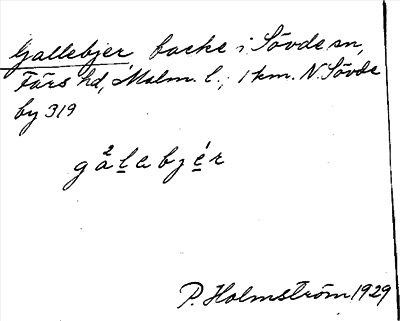 Gallebjer, backe i Sövde sn,
Färs hd, Malm. l.; 1 km. N. Sövde
by 319
gàlabjér
P. Holmström 1929